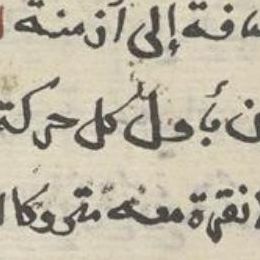 ـافة إلى أزمنة
ن بأول كل حركة
نقرة معه متروكا